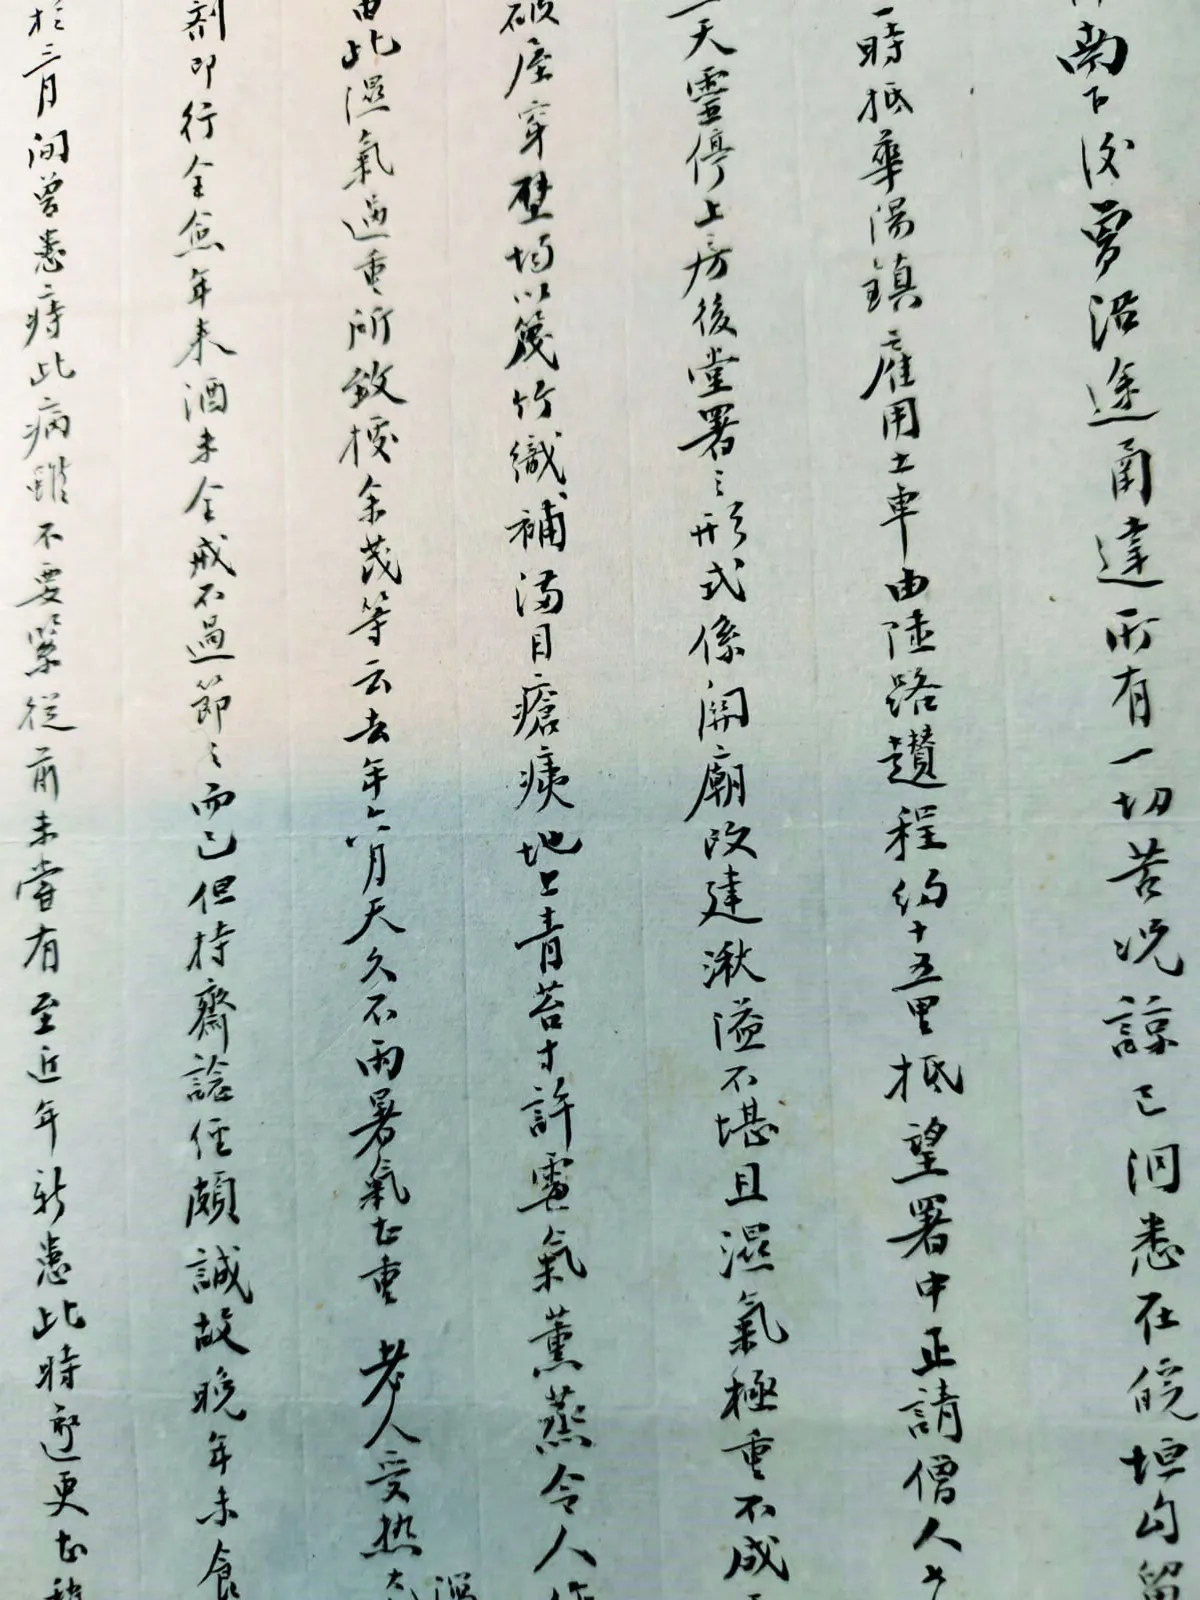 南下後曾沿途函達所有一切苦况諒已洞悉在皖垣勾留
一時抵華陽鎮雇用土車由陸路趲程約十五里抵望署中正請僧人
天靈停上房後堂署之形式係關廟改建湫溢不堪且濕氣極重不成
破屋穿壁均以篾竹織補滿目瘡痍地上青苔寸許霉氣薰蒸令人作
由此濕氣過重所致據余茂等云去年六月天久不雨暑氣甚重老人受熱
濕
劑即行全愈年来酒未全戒不過節之而已但持齋諗經頗誠故晚年未食
於三月間曾患痔此病雖不要緊從前未嘗有至近年新患此時更甚稍